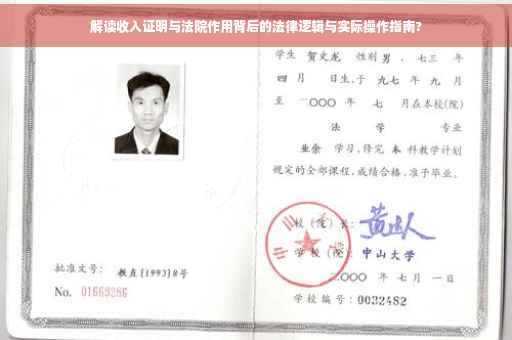 解读收入证明与法院作用背后的法律逻辑与实际操作指南?
学生 贺文龙 性别 男 、七三 年
四 月 日生,于 九七 年 九 月
至 二〇〇〇 年 七 月在本校(院)
法 学 专业
业余 学习,修完 本 科教学计划
规定的全部课程,成绩合格,准予毕业。
校(院)长:
学校(院): 中山大学
二〇〇〇 年 七 月 一 日
批准文号: 教直[1993]8号
No. 01669286
学校编号: 0032482